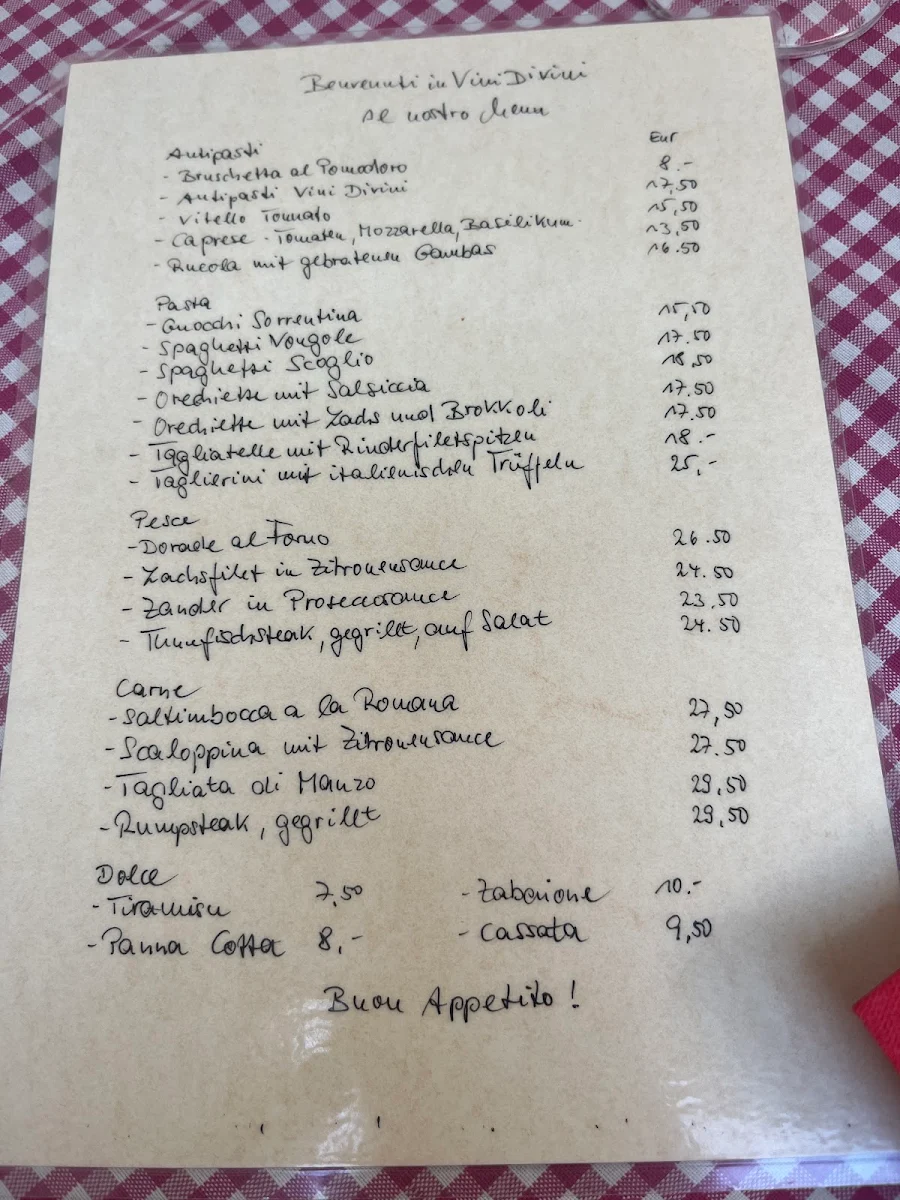 Benvenuti in Vini Divini
al nostro Menu
Eur
Antipasti
- Bruschetta al Pomodoro 8.-
- Antipasti Vini Divini 17,50
- Vitello Tonnato 15,50
- Caprese - Tomaten, Mozzarella, Basilikum 13,50
- Rucola mit gebratenen Gambas 16.50
Pasta
- Gnocchi Sorrentina 15,50
- Spaghetti Vongole 17.50
- Spaghetti Scoglio 18,50
- Orechiette mit Salsiccia 17.50
- Orechiette mit Lachs und Brokkoli 17.50
- Tagliatelle mit Rinderfiletspitzen 18.-
- Taglierini mit italienischen Trüffeln 25,-
Pesce
- Dorade al Forno 26.50
- Lachsfilet in Zitronensauce 24.50
- Zander in Proseccosauce 23,50
- Thunfischsteak, gegrillt, auf Salat 24.50
Carne
- Saltimbocca a la Romana 27,50
- Scaloppina mit Zitronensauce 27.50
- Tagliata di Manzo 29,50
- Rumpsteak, gegrillt 29,50
Dolce
- Tiramisu 7,50 - Zabaione 10.-
- Panna Cotta 8,- - Cassata 9,50
Buon Appetito!